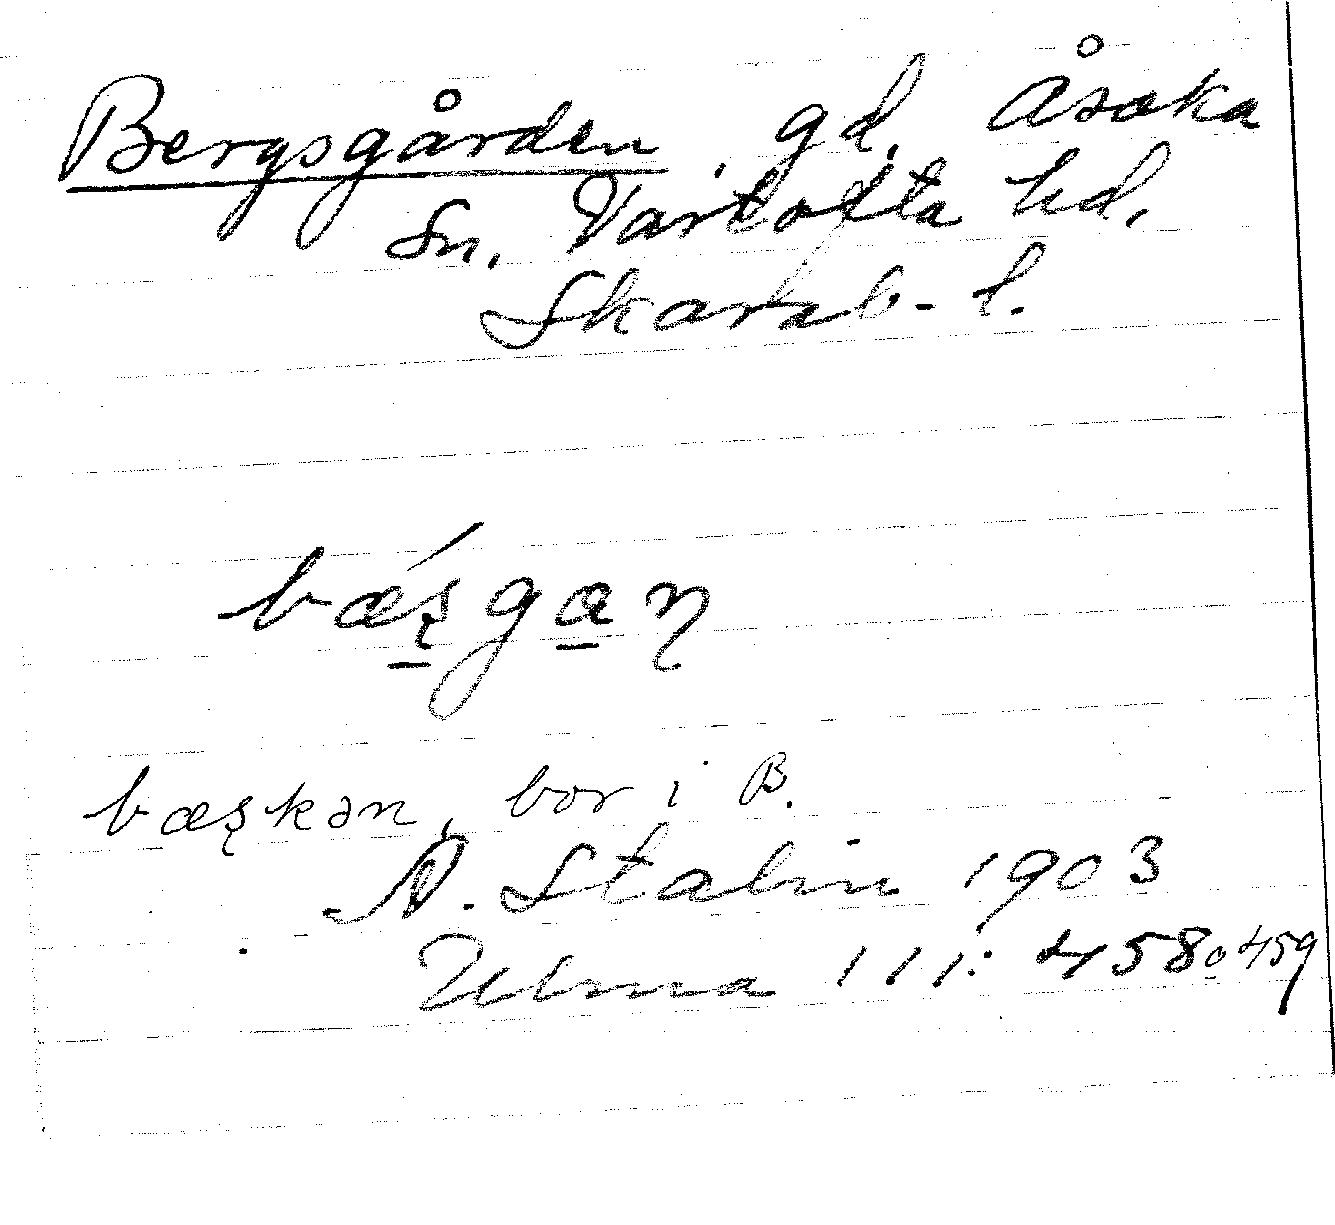 Bergsgården, gd, Åsaka
Sn. Vartofta hd.
Skarab-l.
bæ̲ʂga̲ɳ
bæʂkən, bor i B.
A. Stalin 1903
Ulma 111: 458 o 459